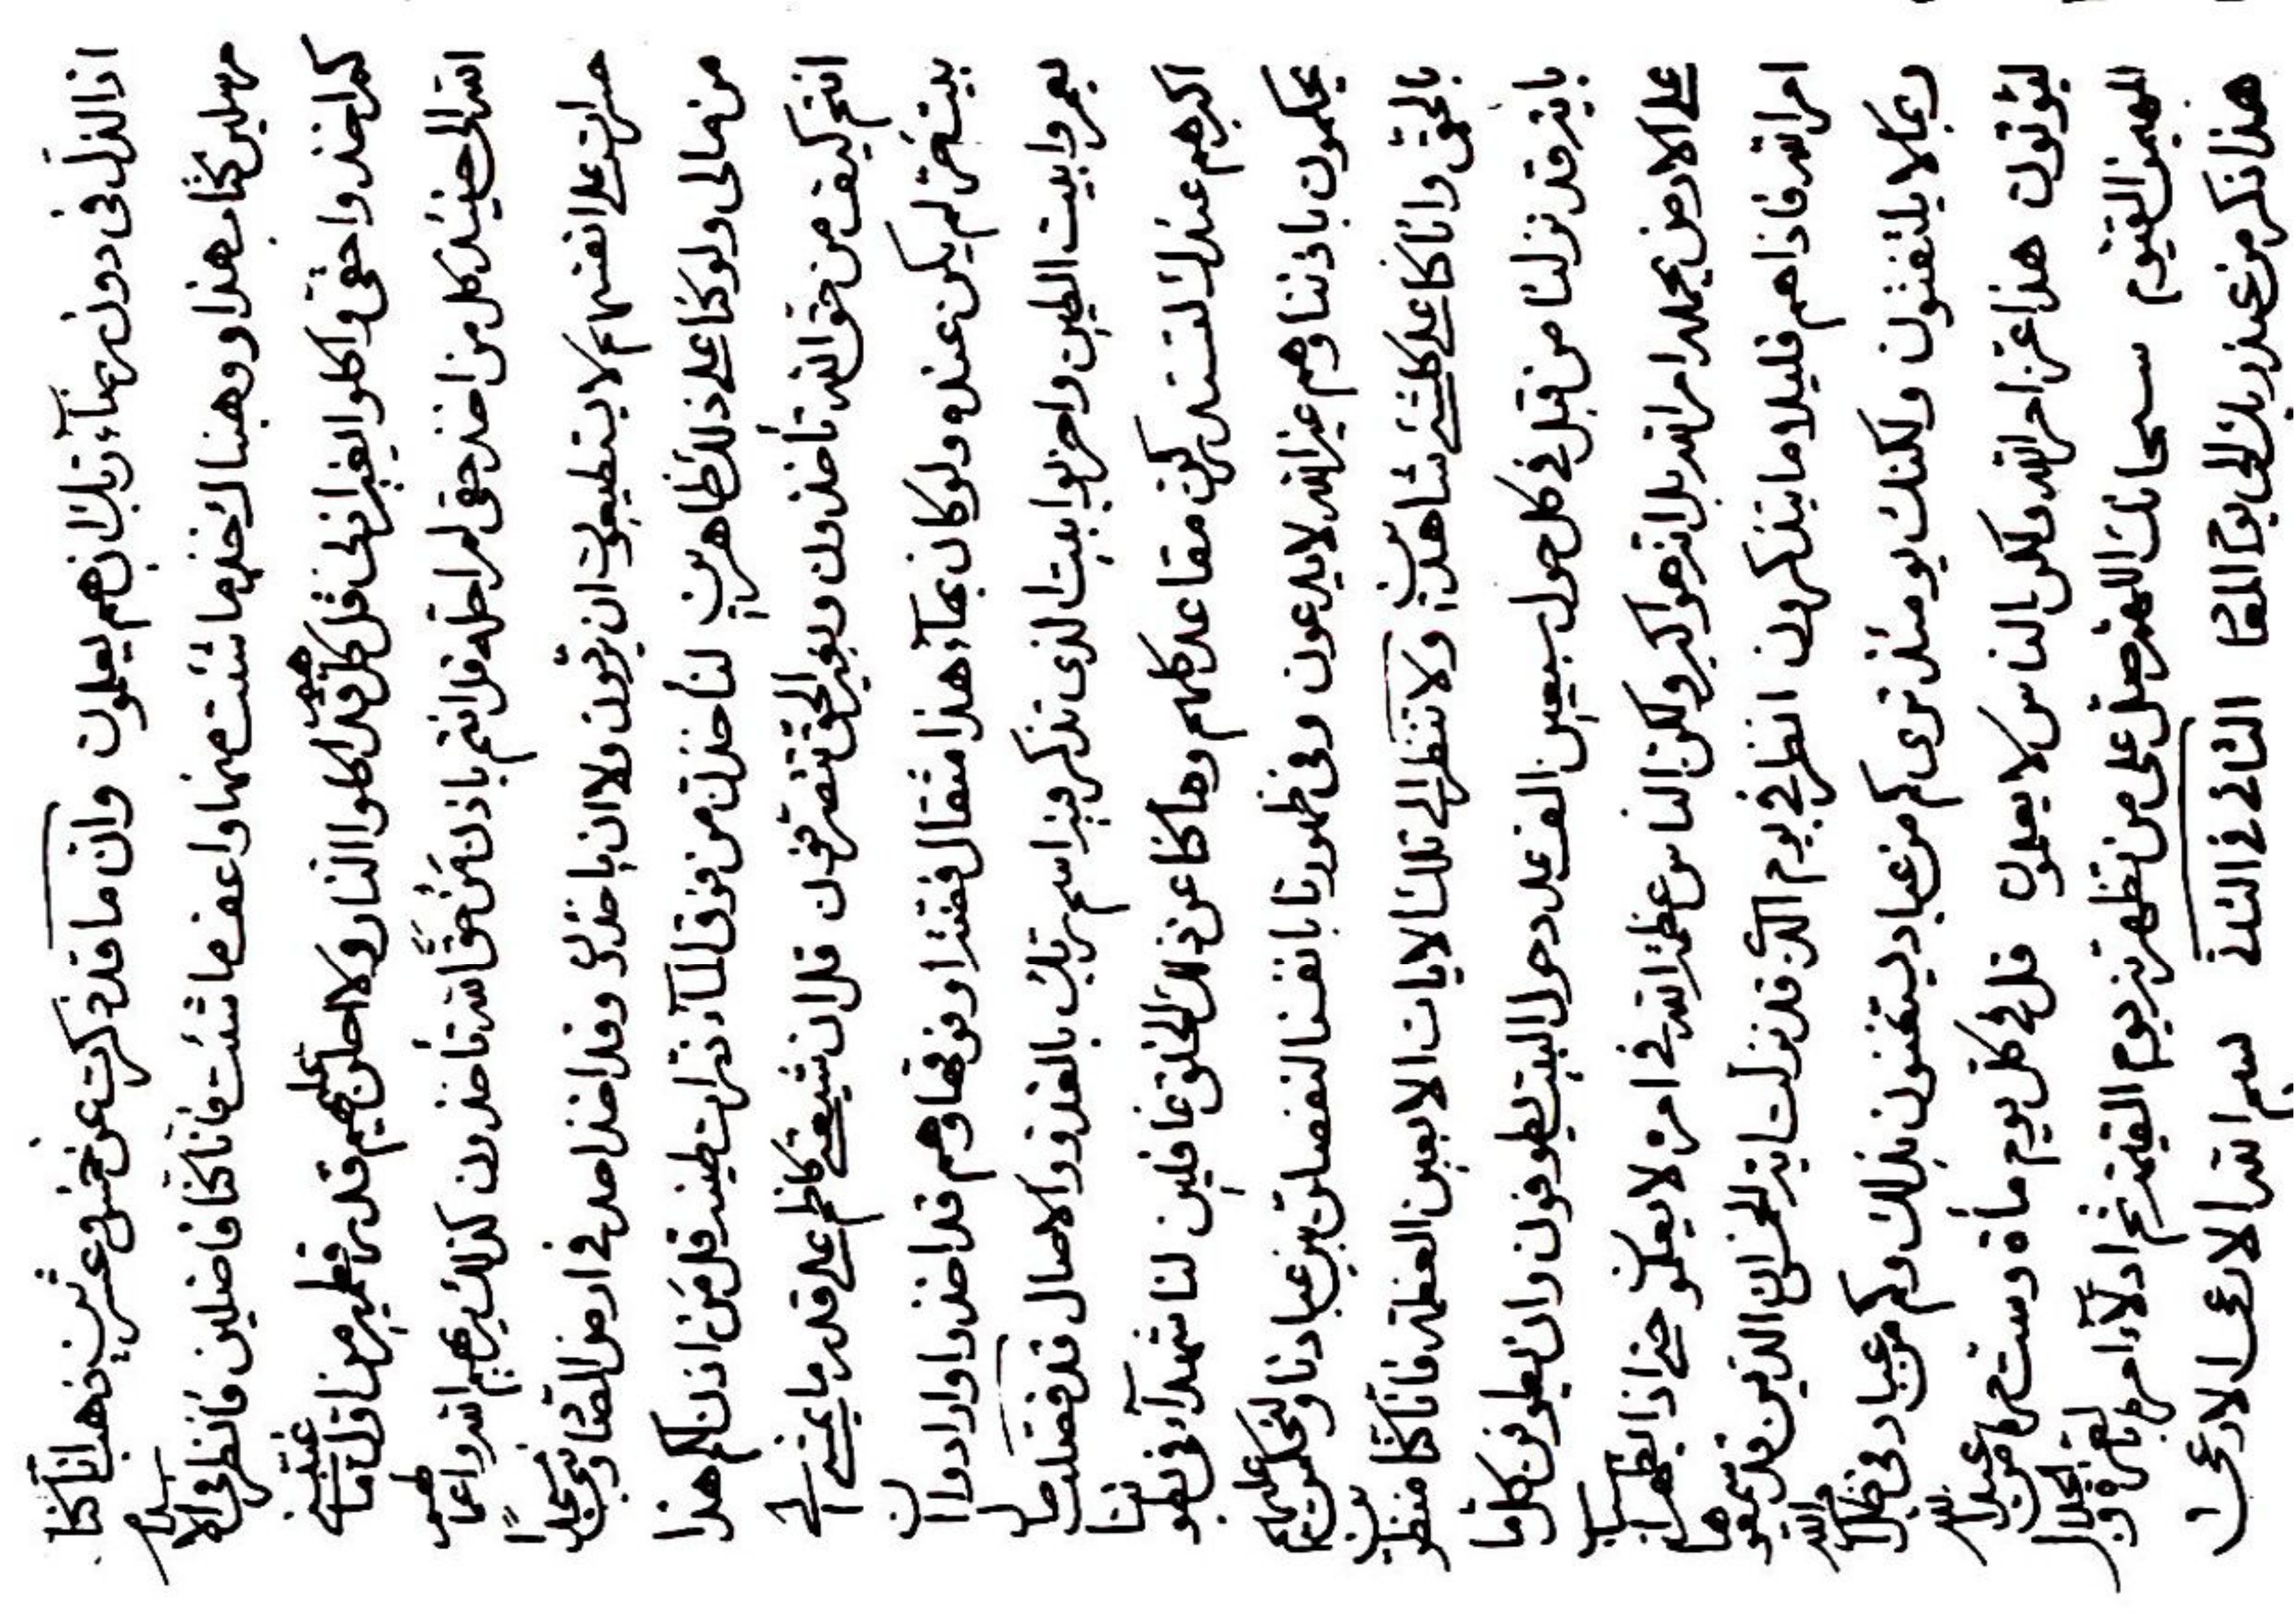 اذا الذل فى دون بهآء ربك ان هم يعلمون وان ما قد ذكرت عن خمس وعشرين ذهب انا كنا
كتاب هذا ووهبناك خذ ما شئت منها واعف ما شئت فانا كنا فاضلين فانظر فى الاسلام
كم اخذوا حقى واكلوا بغير اذنى قل كلهم قد اكلوا النار ولا احلن عليهم قدر قطمير من اول ما غبت
الى حينئذ كل من اخذ حقى لم احل له قل انتم باذن من حق الله تأخذون كذلك يريهم الله اعمالهم
حسرات على انفسهم لا يستطيعون ان ولا ان وقد اخذ احد في ارض
من مالى ولو كنا على ذلك ظاهرين لنأخذن من فوق المآء ذرات طينه قل من اذن لكم هذا
انتم كيف من حق الله تأخذون وبغير الحق تتصرفون قل ان شيعتي كاظم على قدر ما يمشي الى
بيته حق لم يكن عنده ولو كان بمآء هذا مثقال فضة او فوقها وهم قد اخذوا وارادوا ان
يعمروا بيت الطين واخربوا بيت الذى تذكر فيه اسم ربك بالغدو والاصال قد فصلت ما
اكبرهم عندك مقاعد كلهم وما كنا عن ذلك الخلق غافلين لنا شهدآء فى
يحكمون باذننا وهم غير الله لا يدعون وفى ظهورنا بانفسنا لنفصلن بين عبادنا ولنحكمن عليهم
بالحق وانا كنا على كل شيء شاهدين ولا تنظر الى تلك الايات الا بعين العظمة فانا كنا منظرين
باية قد نزلنا من قبل في كل حول سبعين الف عدد حول البيت يطوفون وان يطوفن كل ما
على الارض امر الله بل انه هو اكبر ولكن الناس عظمة الله في امره لا يعلمون حتى اذا
امر الله فاذا هم قليلا ما يتذكرون انظر في يوم الذى قد نزلت اية الخمس ان الذين قد سمعوها
ربما لا يلتفتون ولكنك يومئذ ترى كم من عباد بذلك وكم من عباد فى ظل الله
هذا عز امر الله ولكن الناس لا يعلمون قل في كل يوم مأة وست مرة من عبد الله
المهيمن القيوم سبحانك اللهم صل على من تظهرنه يوم القيمة ثم ادلآء امره بالعزة والجلال
هذا ذكر من عند ربك الى يوم اللقا الثانى في الثانى بسم الله